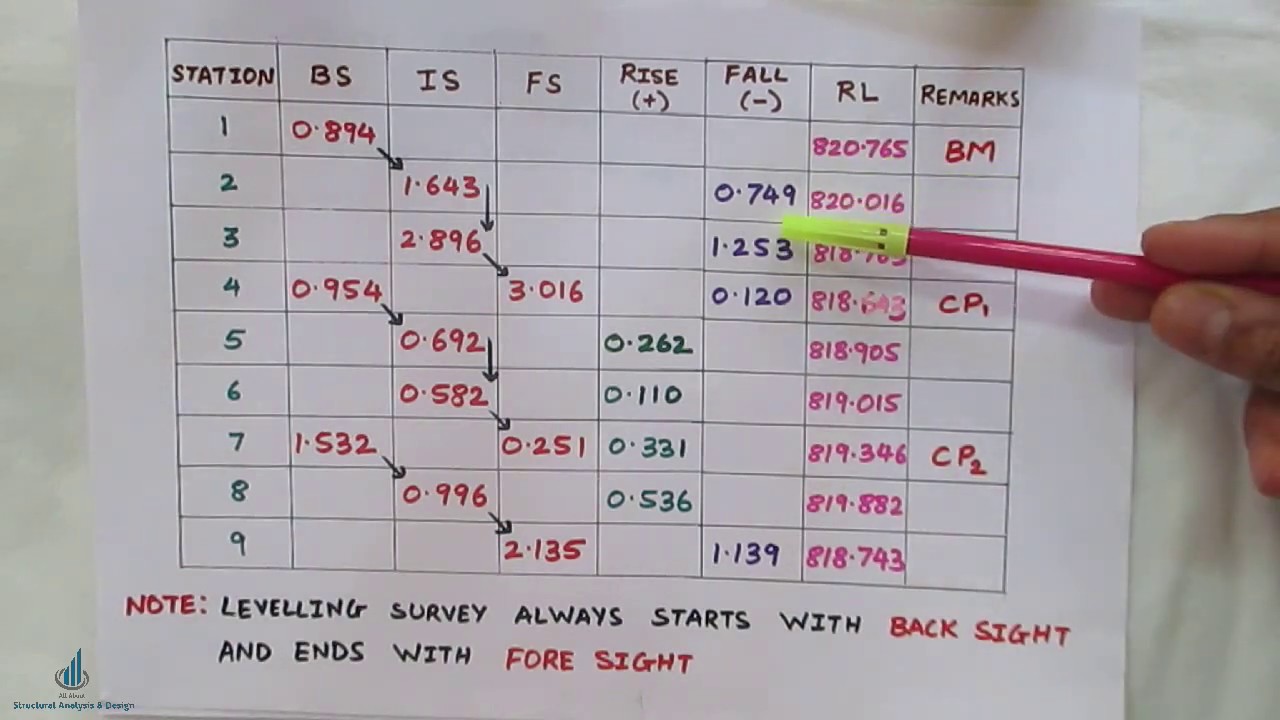 STATION BS IS FS RISE (+) FALL (-) RL REMARKS
1 0.894 820.765 BM
2 1.643 0.749 820.016
3 2.896 1.253
4 0.954 3.016 0.120 818.643 CP1
5 0.692 0.262 818.905
6 0.582 0.110 819.015
7 1.532 0.251 0.331 819.346 CP2
8 0.996 0.536 819.882
9 2.135 1.139 818.743
NOTE: LEVELLING SURVEY ALWAYS STARTS WITH BACK SIGHT
AND ENDS WITH FORE SIGHT
All About
Structural Analysis & Design